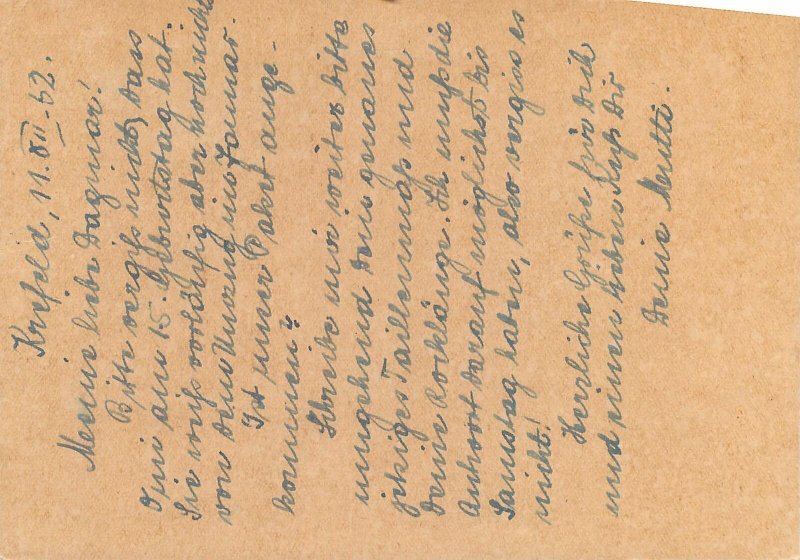 Krefeld, 11. XII. 52.
Meine liebe Dagmar!
Bitte vergiß nicht, dass
am 15. Geburtstag hat.
Sie weiß vorläufig aber noch nichts
von dem Umzug im Januar.
Ist unser Paket ange-
kommen?
Schreibe mir weiter bitte
umgehend dein genaues
jetziges Taillenmaß und
deine Rocklänge. Ich muß die
Antwort darauf möglichst bis
Samstag haben, also vergiss es
nicht!
Herzliche Grüße für Dich
und einen lieben Kuß Dir
Deine Mutti.